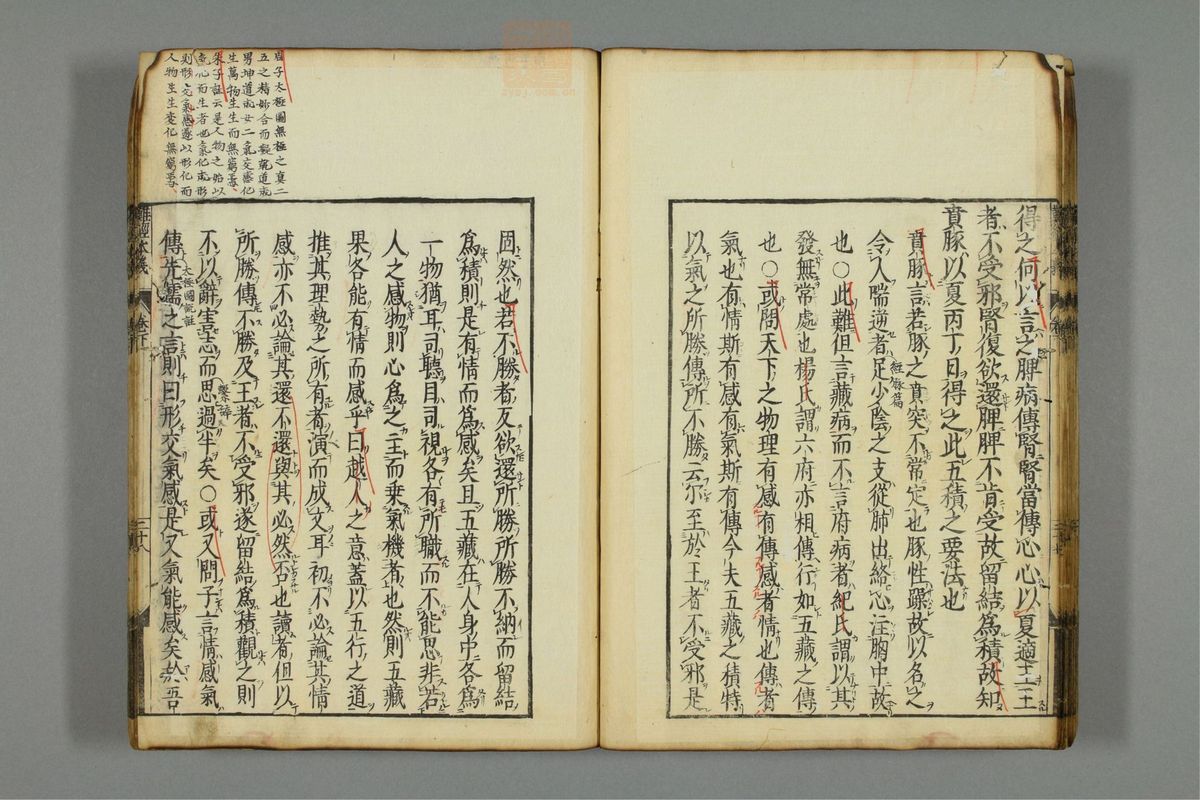 得之何以言之脾病傳腎腎當傳心心以夏適王王
者不受邪腎復欲還脾脾不肯受故留結爲積故知
賁豚以夏丙丁日得之此五積之要法也
賁豚言若豚之賁突不常定也豚性躁故以名之
令人喘逆者足少陰之支從肺出絡心注胸中故
經脉篇
也○此難但言藏病而不言府病者紀氏謂以其
發無常處也楊氏謂六府亦相傳行如五藏之傳
也○或問天下之物理有感有傳感者情也傳者
氣也有情斯有感有氣斯有傳今夫五藏之積特
以氣之所勝傳所不勝云尔至於王者不受邪是
固然也若不勝者反欲還所勝所勝不納而留結
爲積則是有情而爲感矣且五藏在人身中各爲
一物猶耳司聽目司視各有所職而不能思非若
人之感物則心爲之主而乗氣機者也然則五藏
果各能有情而感乎曰越人之意蓋以五行之道
推其理勢之所有者演而成文耳初不必論其情
感亦不必論其還不還與其必然否也讀者但以
所勝傳不勝及王者不受邪遂留結爲積觀之則
不以辭害志而思過半矣○或又問子言情感氣
繫辭
傳先儒之言則曰形交氣感是又氣能感矣於吾
太極圖説註
周子太極圖無極之真二
五之精妙合而凝乾道成
男坤道成女二氣交感化
生萬物生生而無窮焉
朱子註云是人物之始以
氣化而生者也氣化成形
則形交氣感遂以形化而
人物生生變化無窮焉
難經本義
卷下
三十八